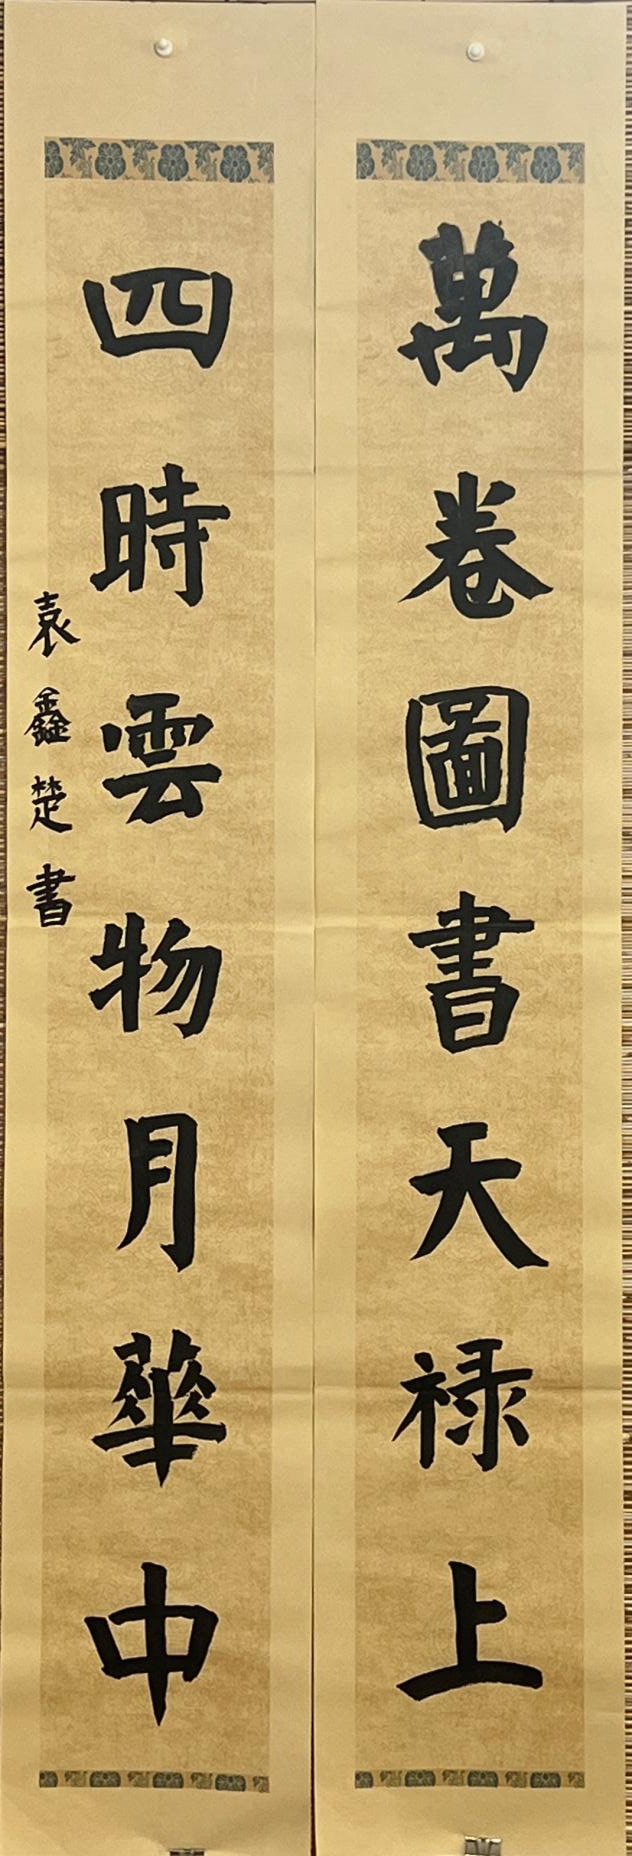 萬卷圖書天禄上
四時雲物月華中
袁鑫楚書